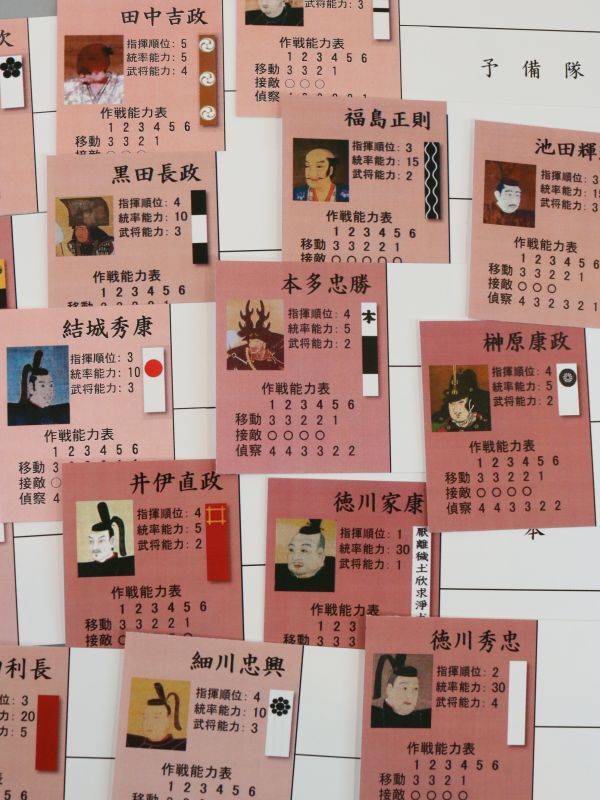 次
田中吉政
指揮順位: 5
統率能力: 5
武将能力: 4
作戦能力表
1 2 3 4 5 6
移動 3 3 2 1
接敵 ○ ○ ○
武将能力: 3
作戦能力表
1 2 3 4 5 6
移動 3 3 2 1
接敵 ○ ○ ○
偵察
予備隊
福島正則
指揮順位: 3
統率能力: 15
武将能力: 2
作戦能力表
1 2 3 4 5 6
移動 3 3 2 2 1
接敵 ○ ○ ○ ○ ○
池田輝
指揮順位: 3
統率能力: 15
武将能力: 3
作戦能力表
1 2 3 4 5
移動 3 3 2 2 1
接敵 ○ ○ ○
偵察 4 3 2 3 2 1
黒田長政
指揮順位: 4
統率能力: 10
武将能力: 3
作戦能力表
1 2 3 4 5 6
本多忠勝
指揮順位: 4
統率能力: 5
武将能力: 2
本
作戦能力表
1 2 3 4 5 6
移動 3 3 2 2 1
接敵 ○ ○ ○ ○
偵察 4 4 3 3 2 2
結城秀康
指揮順位: 3
統率能力: 10
武将能力: 3
作戦能力表
1 2 3 4 5 6
移動 3
接敵 ○
偵察 4
榊原康政
指揮順位: 4
統率能力: 5
武将能力: 2
作戦能力表
1 2 3 4 5 6
移動 3 3 2 2 1
接敵 ○ ○ ○ ○
偵察 4 4 3 3 2 2
本
井伊直政
指揮順位: 4
統率能力: 5
武将能力: 2
作戦能力表
1 2 3 4 5 6
移動 3 3 2 2 1
接敵 ○
徳川家康
指揮順位: 1
統率能力: 30
武将能力: 1
厭離穢土欣求浄土
作戦能力表
1 2 3 4 5 6
移動 3 3 3
利長
順位: 3
能力: 20
能力: 5
細川忠興
指揮順位: 4
統率能力: 10
武将能力: 3
作戦能力表
1 2 3 4 5 6
移動 3 3 2 2 1
徳川秀忠
指揮順位: 2
統率能力: 30
武将能力: 4
作戦能力表
1 2 3 4 5 6
移動 3 3 2 1
接敵 ○ ○ ○ ○